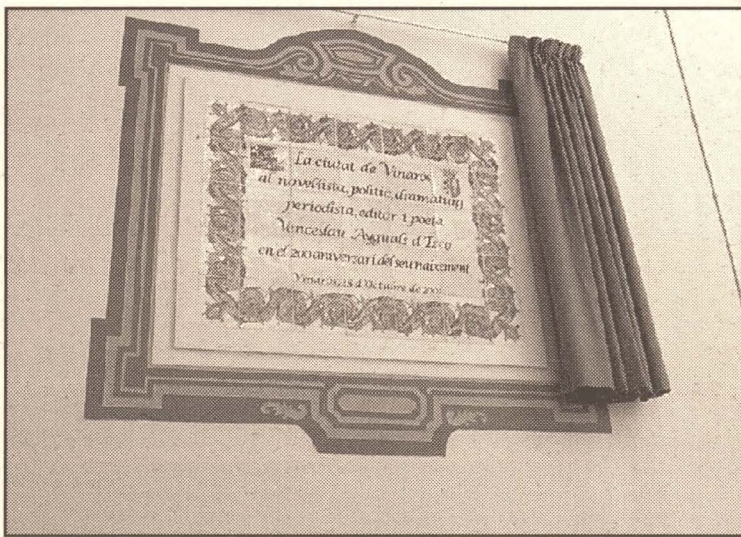 La ciutat de Vinaròs
al novel·lista, polític, dramaturg
periodista, editor i poeta
Venceslau Ayguals d'Izco
en el 200 aniversari del seu naixement
Vinaròs, 18 d'Octubre de 2001